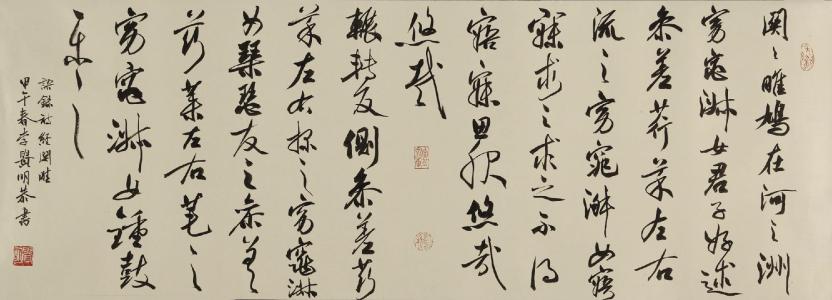 関々雎鳩在河之洲
窈窕淑女君子好逑
参差荇菜左右
流之窈窕淑女寤
寐求之求之不得
寤寐思服悠哉
悠哉
輾轉反側参差荇
菜左右採之窈窕淑
女琴瑟友之参差
荇菜左右芼之
窈窕淑女鍾鼓
樂之
錄詩經関雎
甲午春李賢明恭書